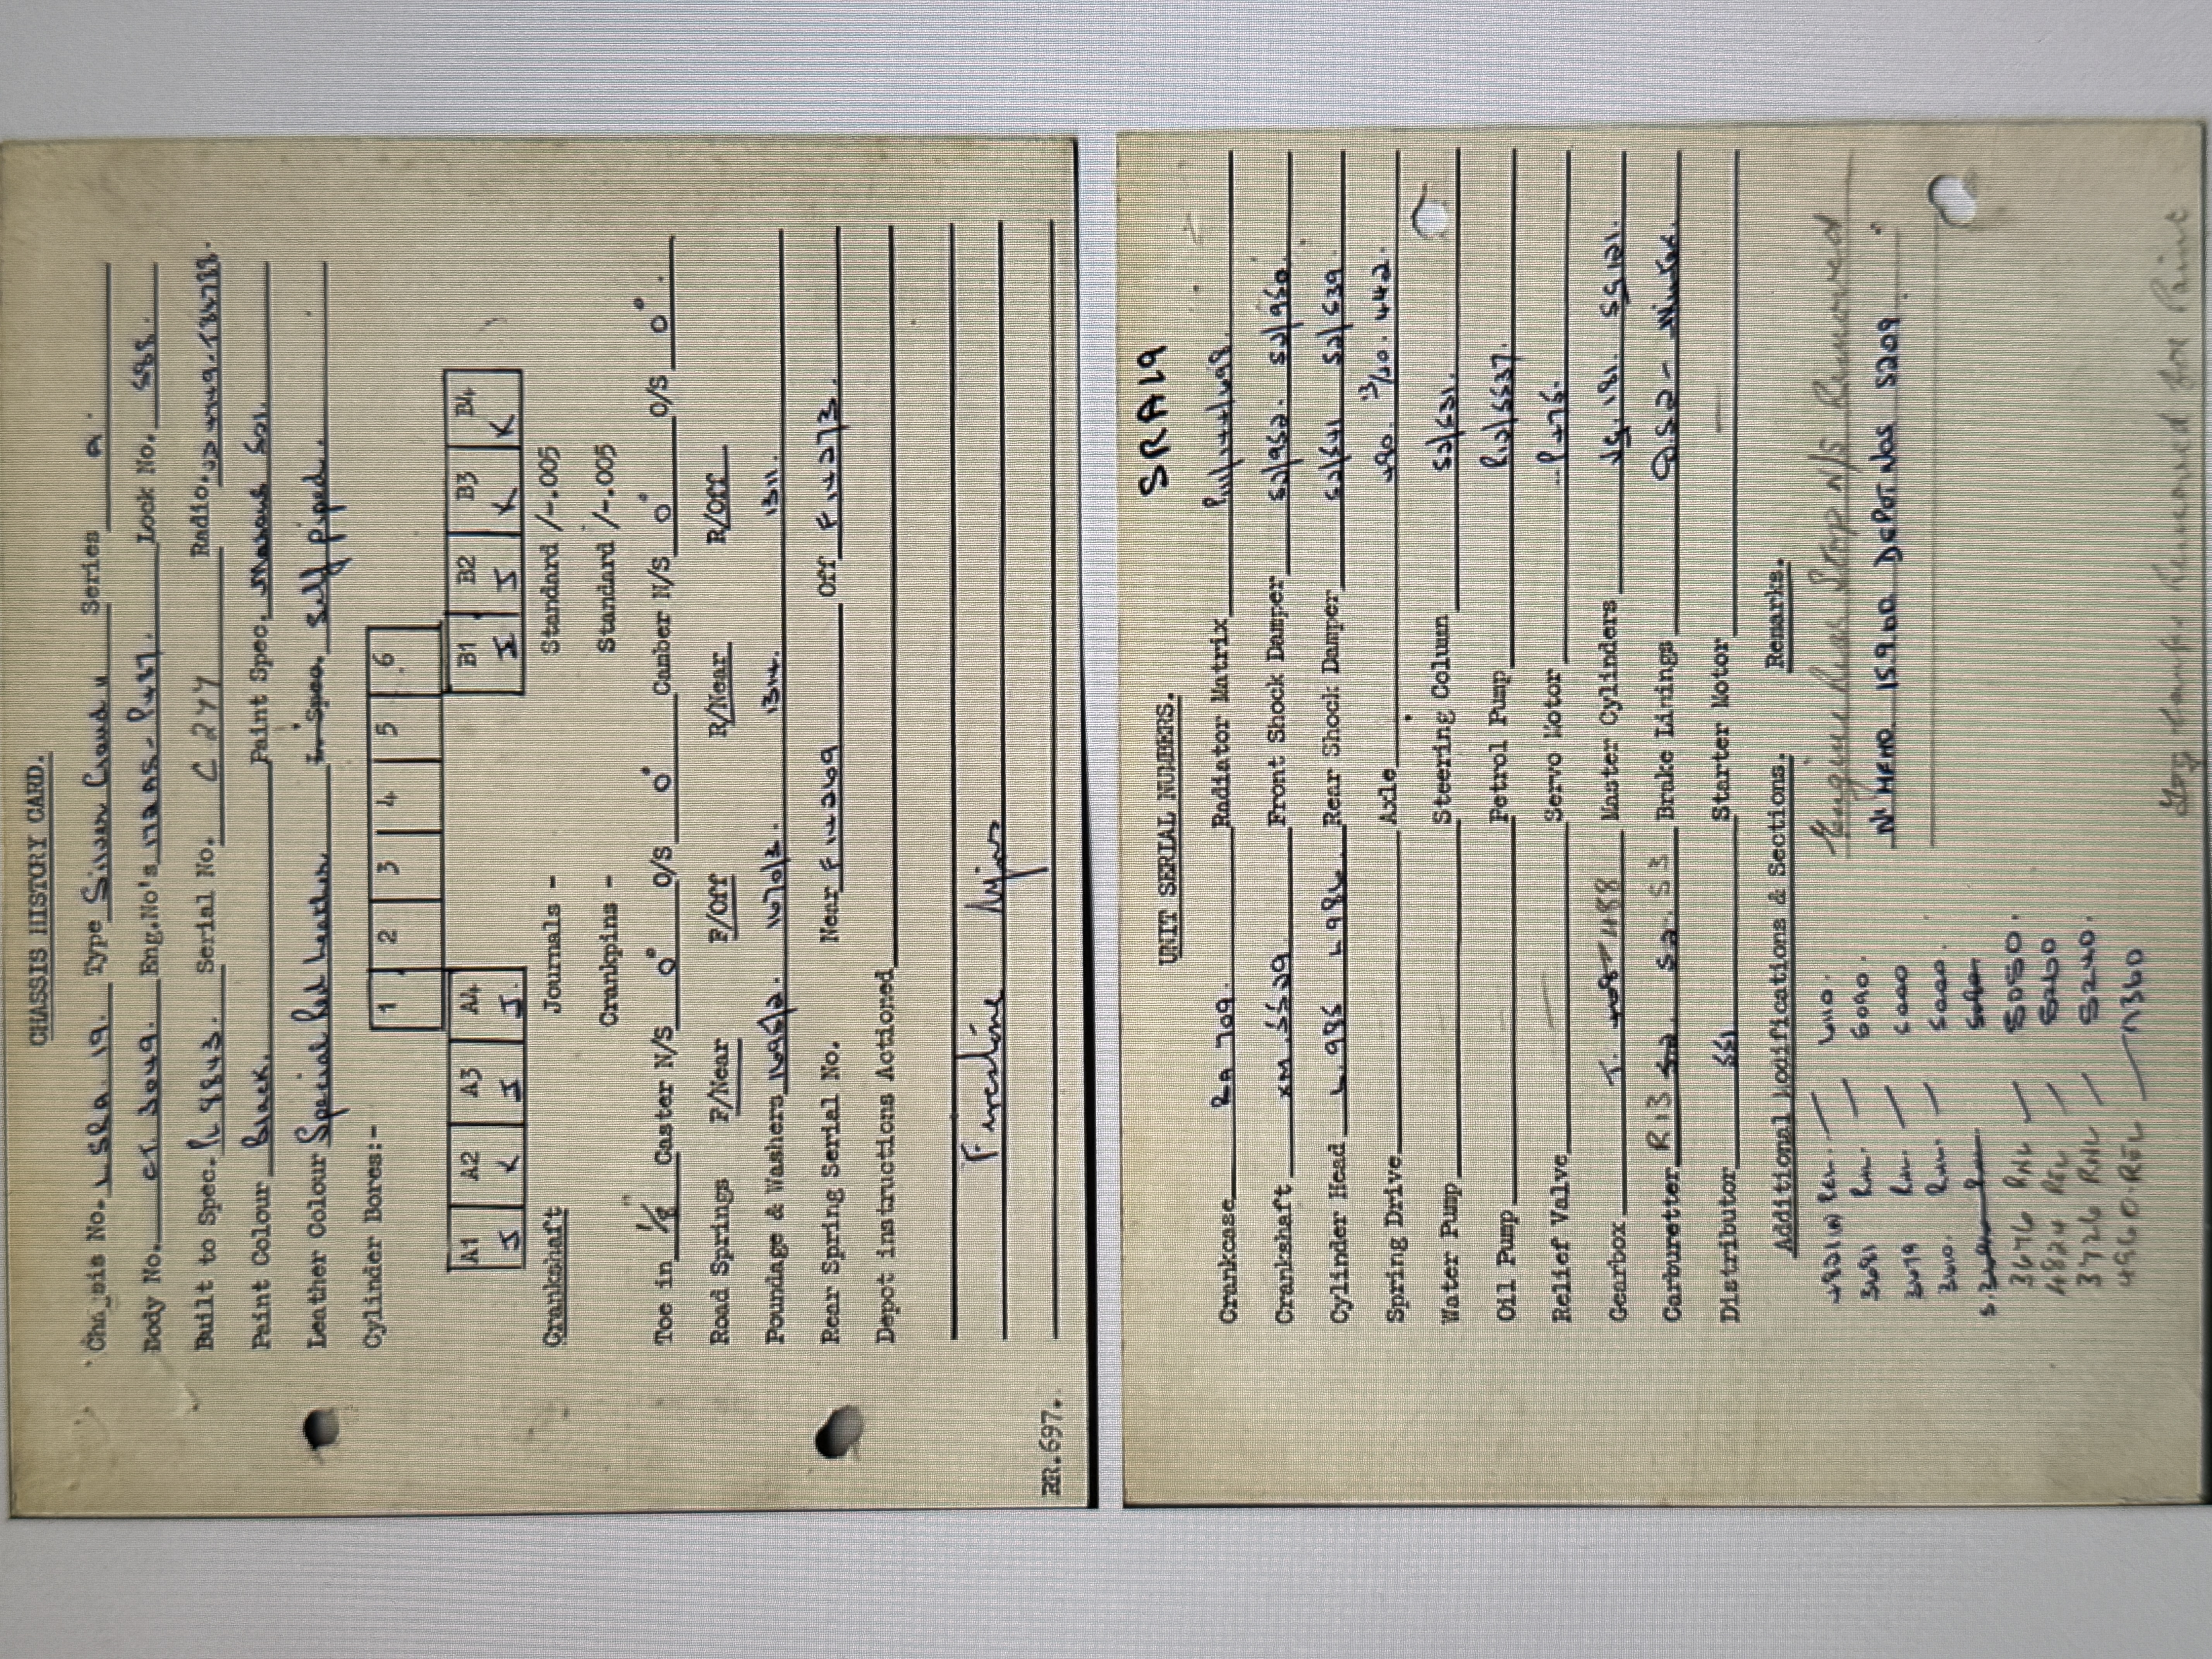 CHASSIS HISTORY CARD.
Chassis No. LSRA. 19. Type Silver Cloud II Series A.
Body No. CT. 3049. Eng.No's 172 AS - P487. Lock No. 588.
Built to Spec. RL 9843. Serial No. C 277 Radio.
Paint Colour Black. Paint Spec. Masons 501.
Leather Colour Special Red Leather Spec. Self piped.
Cylinder Bores:-
1 2 3 4 5 6
A1 A2 A3 A4 B1 B2 B3 B4
J K J J. I J K K
Crankshaft Journals - Standard /-.005
Crankpins - Standard /-.005
Toe in 1/8" Caster N/S 0° O/S 0° Camber N/S 0° O/S 0°.
Road Springs F/Near F/Off R/Near R/Off
Poundage & Washers 1695/2. 1670/2. 1314. 1311.
Rear Spring Serial No. Near F 14269 Off F 14273.
Depot instructions Actioned
Firestone
RR.697.
SRA19
UNIT SERIAL NUMBERS.
Crankcase RA 709. Radiator Matrix
Crankshaft XM. 5529. Front Shock Damper 52/962. 52/960.
Cylinder Head L.985 L986. Rear Shock Damper 52/541 52/539.
Spring Drive Axle 490. 13/40. 442.
Water Pump Steering Column 52/531.
Oil Pump Petrol Pump
Relief Valve Servo Motor P476.
Gearbox T. 1488 Master Cylinders
Carburetter R13 S2. S3 Brake Linings
Distributor 551 Starter Motor —
Additional Modifications & Sections. Remarks.
6110. Engine Rear Stop N/S Removed
3681 6090.
3679 6000 N. MEMO. 15900 DEPOT NOS 5209.
3660. 5000.
3676 RNL — 5050.
4824 REL — 5260
3726 RNL — 5240.
4960. REL — 7360
Fog Lamps Removed for Paint